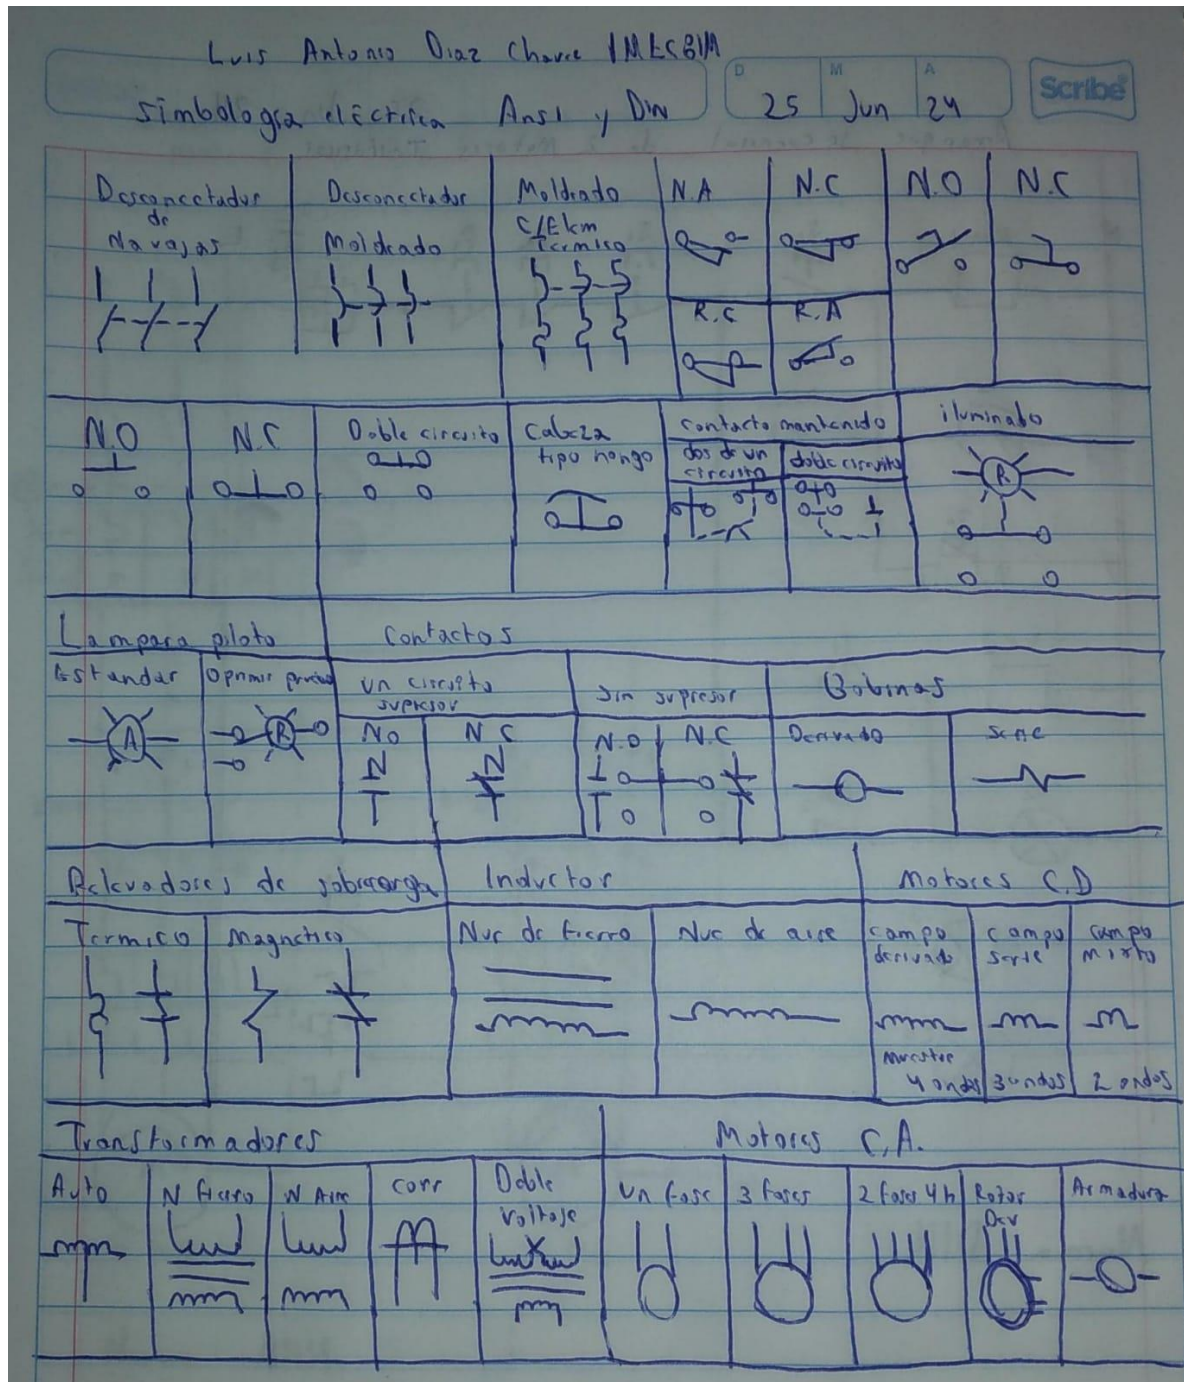 Luis Antonio Diaz Chavez
D M A
25 Jun 24
Scribe
Simbologia eléctrica Ansi y Din
Desconectador de Navajas
Desconectador Moldeado
Moldeado
Termico
N.A
N.C
N.O
N.C
R.C
R.A
N.O
N.C
Doble circuito
Cabeza tipo hongo
contacto mantenido
dos de un circuito
doble circuito
iluminado
R
Lampara piloto
Contactos
Estandar
Oprimir
un circuito
sin supresor
Bobinas
A
R
NO
N C
N.O
N.C
Derivado
serie
Relevadores de sobrecarga
Inductor
Motores C.D
Termico
Magnetico
Nuc de fierro
Nuc de aire
campo derivado
campo serie
campo mixto
4 ondas
3 ondas
2 ondas
Transformadores
Motores C.A.
Auto
N fierro
N Aire
corr
Doble voltaje
un fase
3 fases
2 fases 4 h
Rotor Dev
Armadura